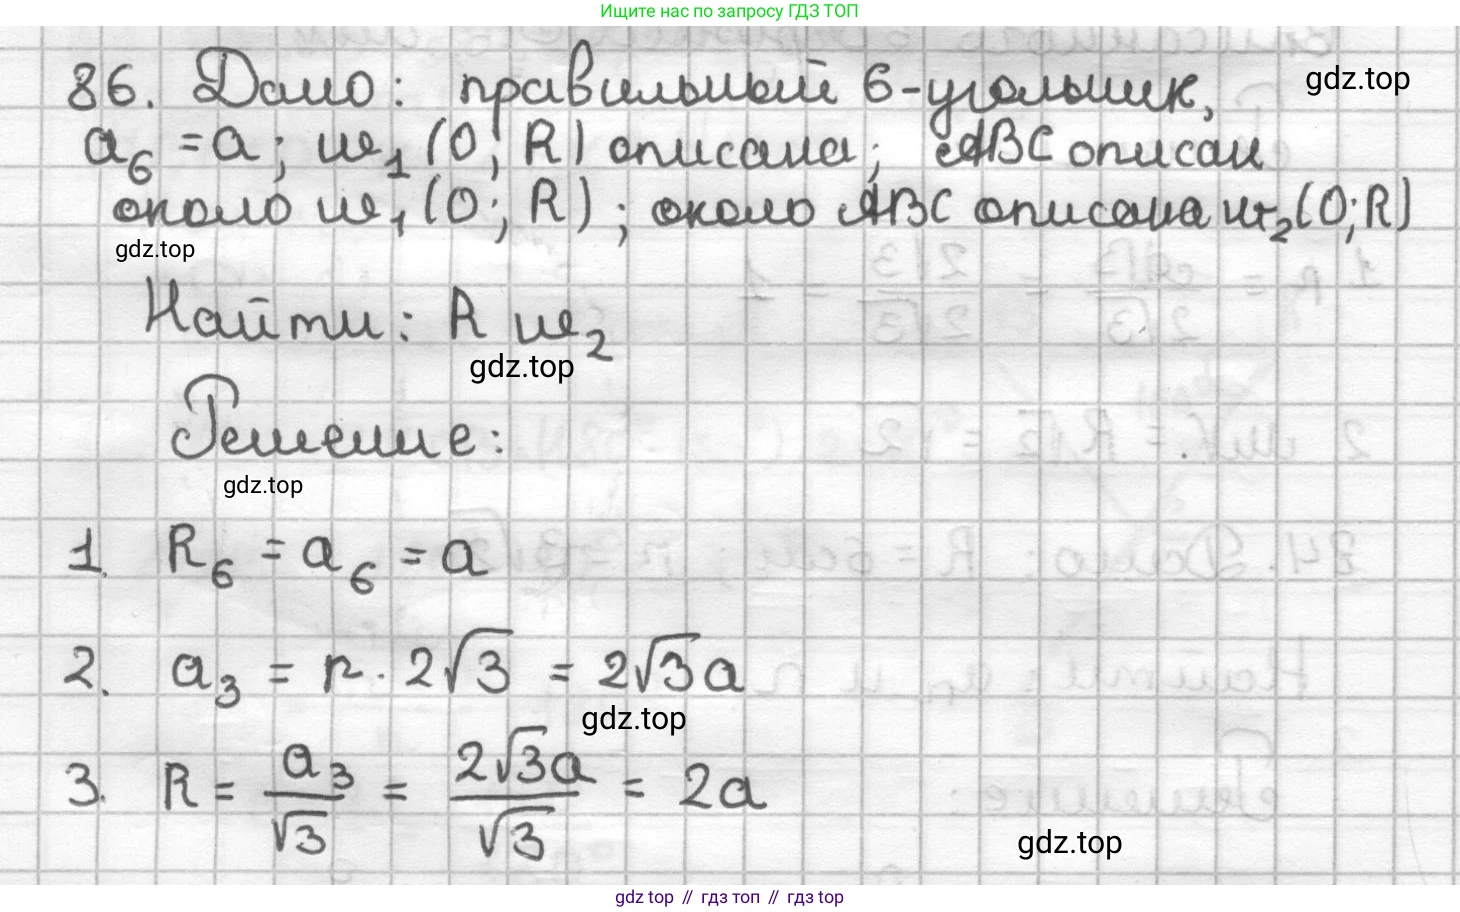 Ищите нас по запросу ГДЗ ТОП
86. Дано: правильный 6-угольник,
gdz.top
a₆ = a; w₁ (O; R) описана; ABC описан
около w₁ (O; R); около ABC описана w₂ (O; R)
gdz.top
Найти: R w₂
gdz.top
Решение:
gdz.top
1. R₆ = a₆ = a
2. a₃ = r · 2√3 = 2√3a
gdz.top
3. R = a₃/√3 = 2√3a/√3 = 2a
gdz.top
gdz top // гдз топ // гдз top